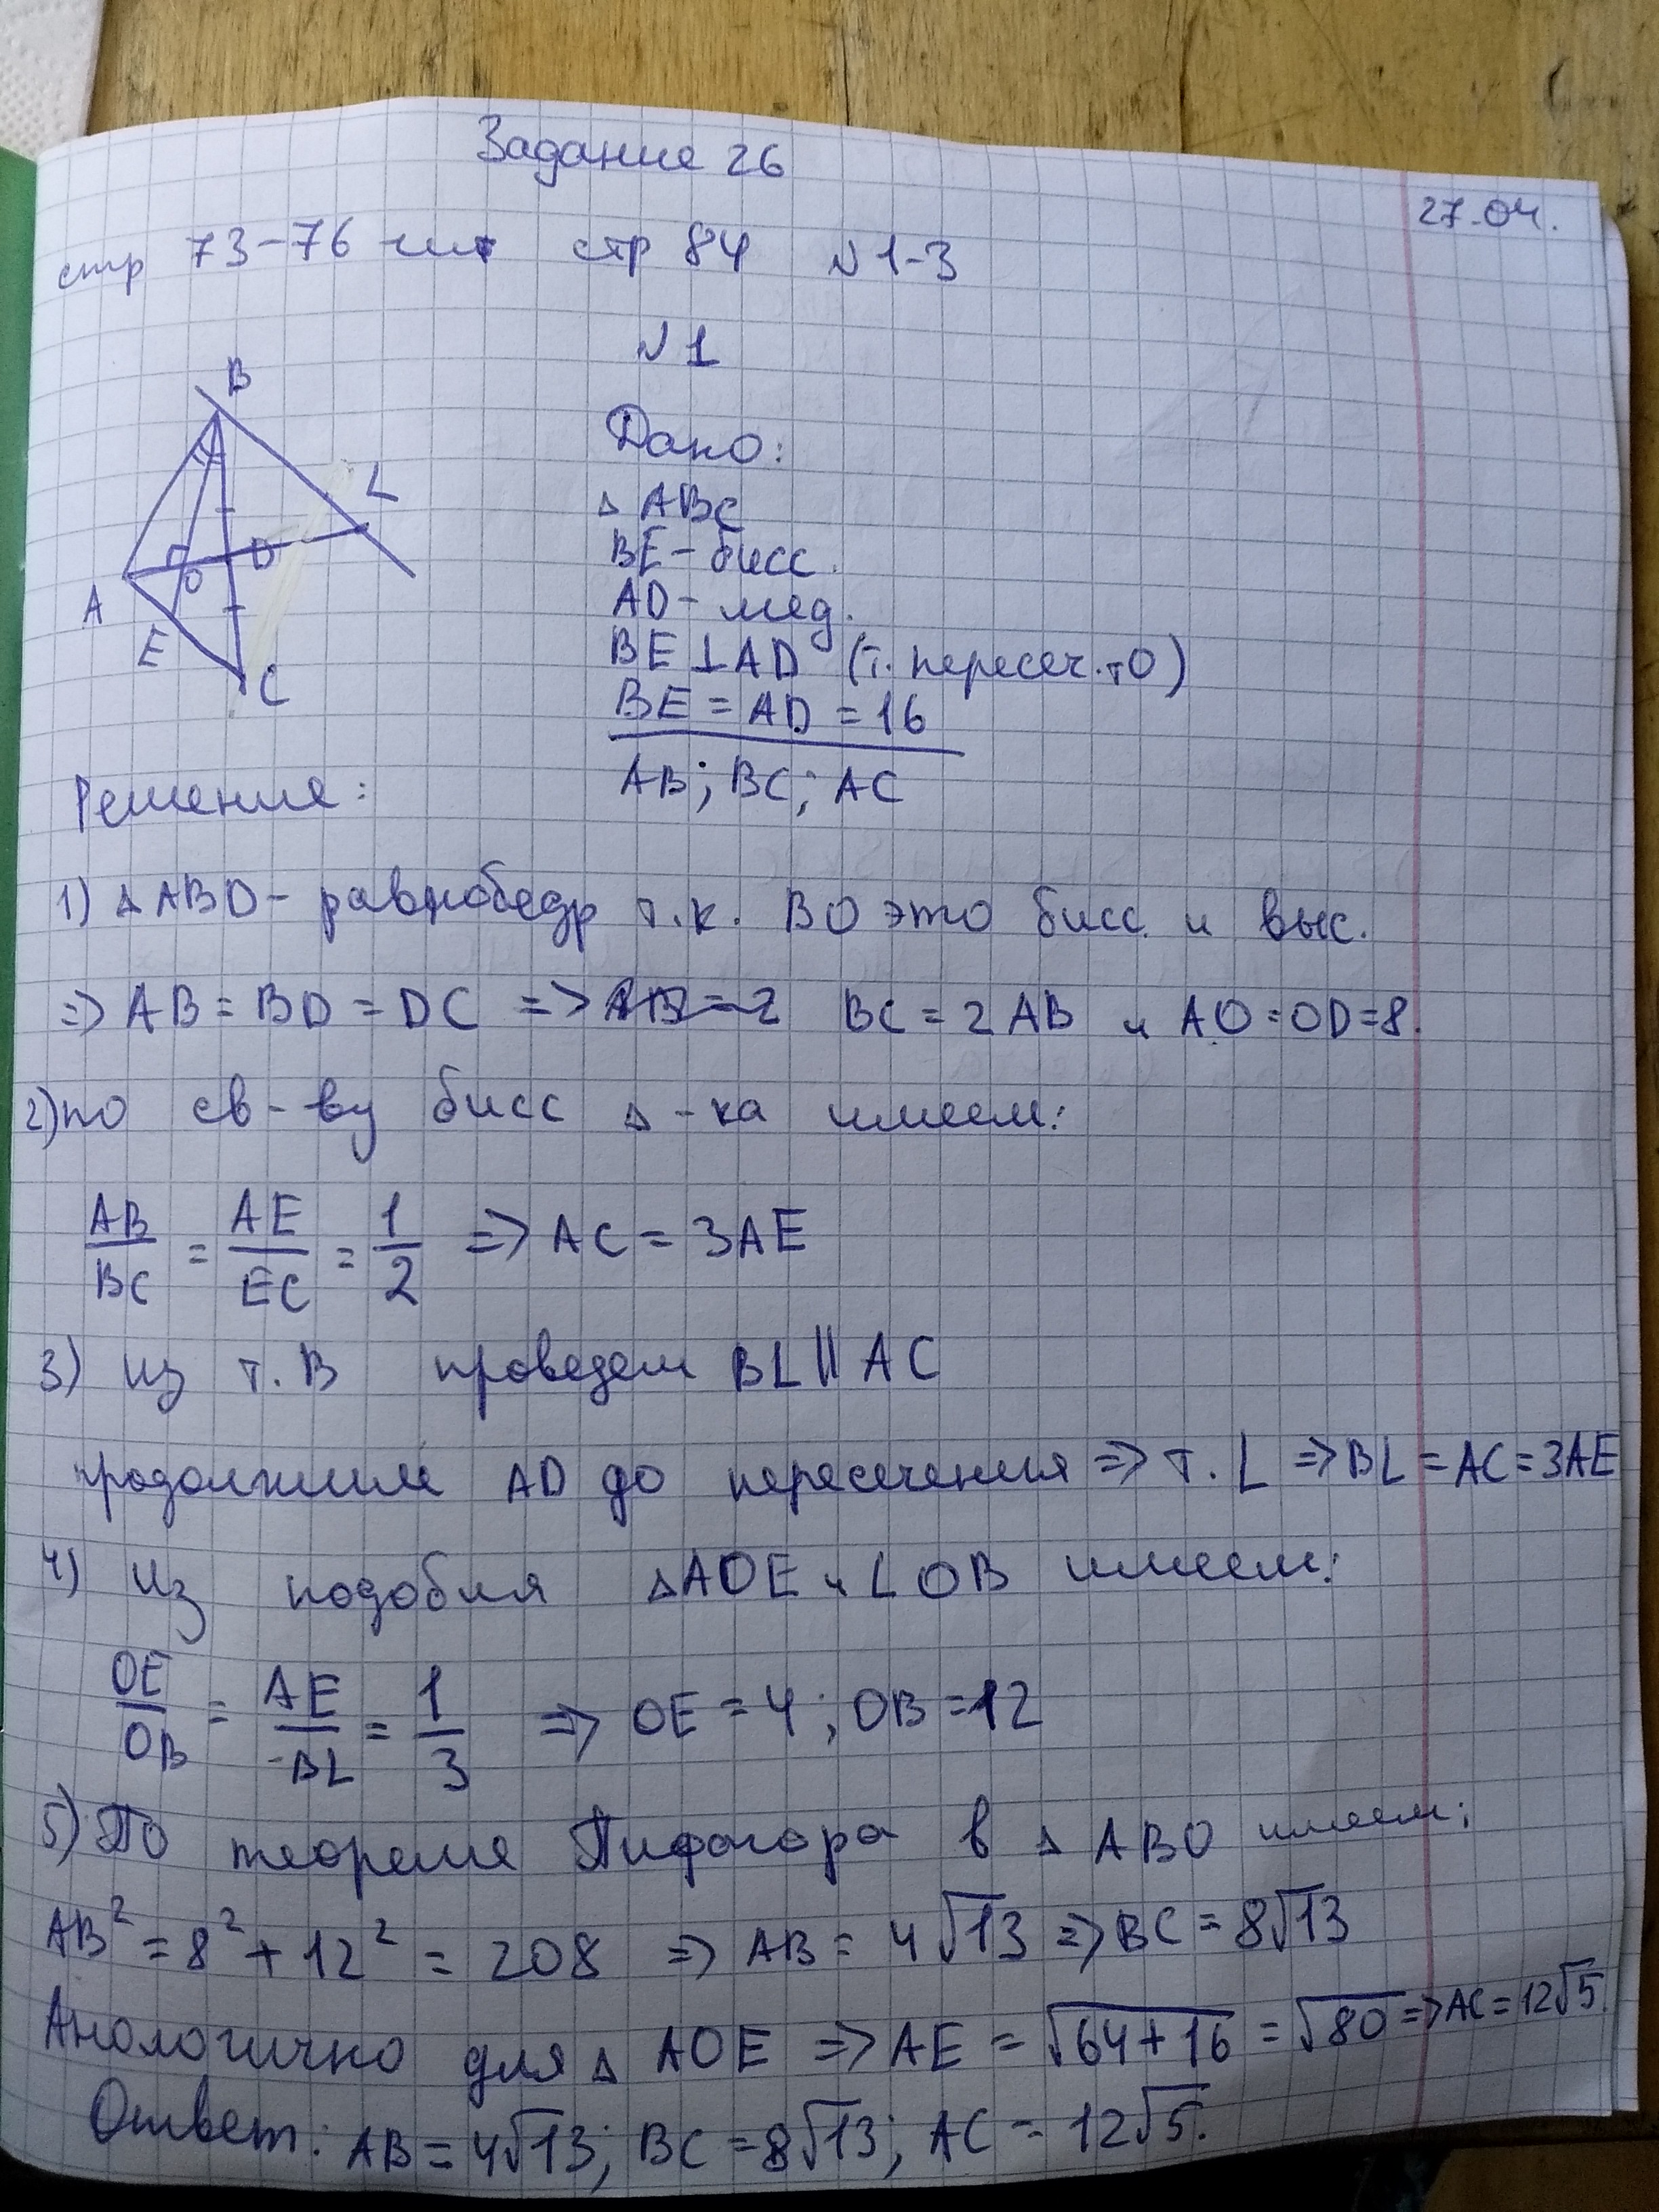 Задание 26
27.04.
стр 73-76 чит стр 84 №1-3
№1
B
L
D
O
A
E
C
Дано:
△ ABC
BE - бисс.
AD - мед.
BE ⊥ AD (т. пересеч. тO)
BE = AD = 16
AB; BC; AC
Решение:
1) △ ABD - равнобедр т.к. BO это бисс. и выс.
=> AB = BD = DC => BC = 2 AB и AO = OD = 8.
2) по св-ву бисс △-ка имеем:
AB/BC = AE/EC = 1/2 => AC = 3AE
3) из т. B проведем BL || AC
продолжим AD до пересечения => т. L => BL = AC = 3AE
4) из подобия △AOE и LOB имеем:
OE/OB = AE/BL = 1/3 => OE = 4; OB = 12
5) По теореме Пифагора в △ ABO имеем;
AB² = 8² + 12² = 208 => AB = 4√13 => BC = 8√13
Анологично для △ AOE => AE = √64+16 = √80 => AC = 12√5.
Ответ: AB = 4√13; BC = 8√13; AC = 12√5.